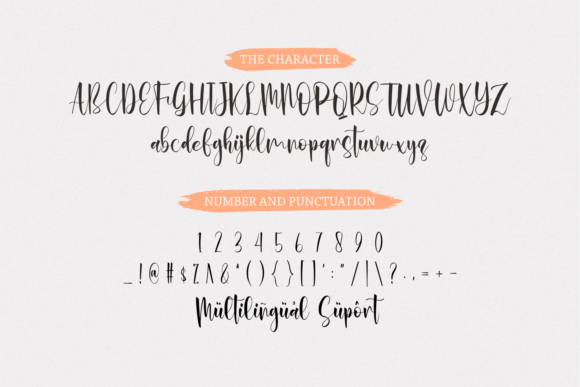 THE CHARACTER
ABCDEFGHIJKLMNOPQRSTUVWXYZ
abcdefghijklmnopqrstuvwxyz
NUMBER AND PUNCTUATION
1 2 3 4 5 6 7 8 9 0
_ ! @ # $ % ^ & * ( ) { } [ ] ' : " / | \ ? . , = + -
Mültilingüål Süpôrt